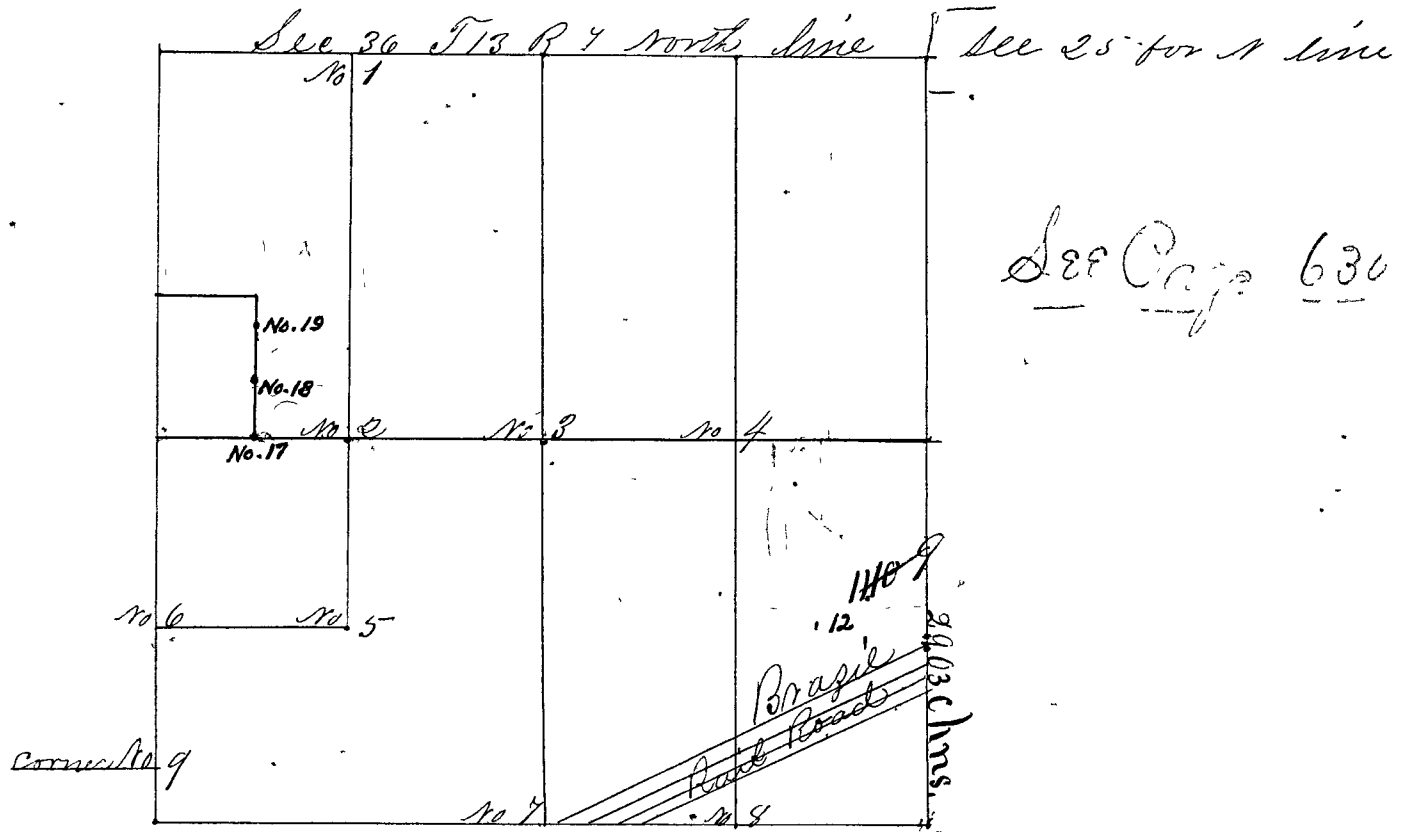 Sec 36 T13 R 7 North line
See 25 for N line
No 1
See Page 630
No. 19
No. 18
No 2
No 3
No 4
No. 17
No 6
No 5
12
2903 chns.
Brazil
Rail Road
corner No 9
No 7
No 8